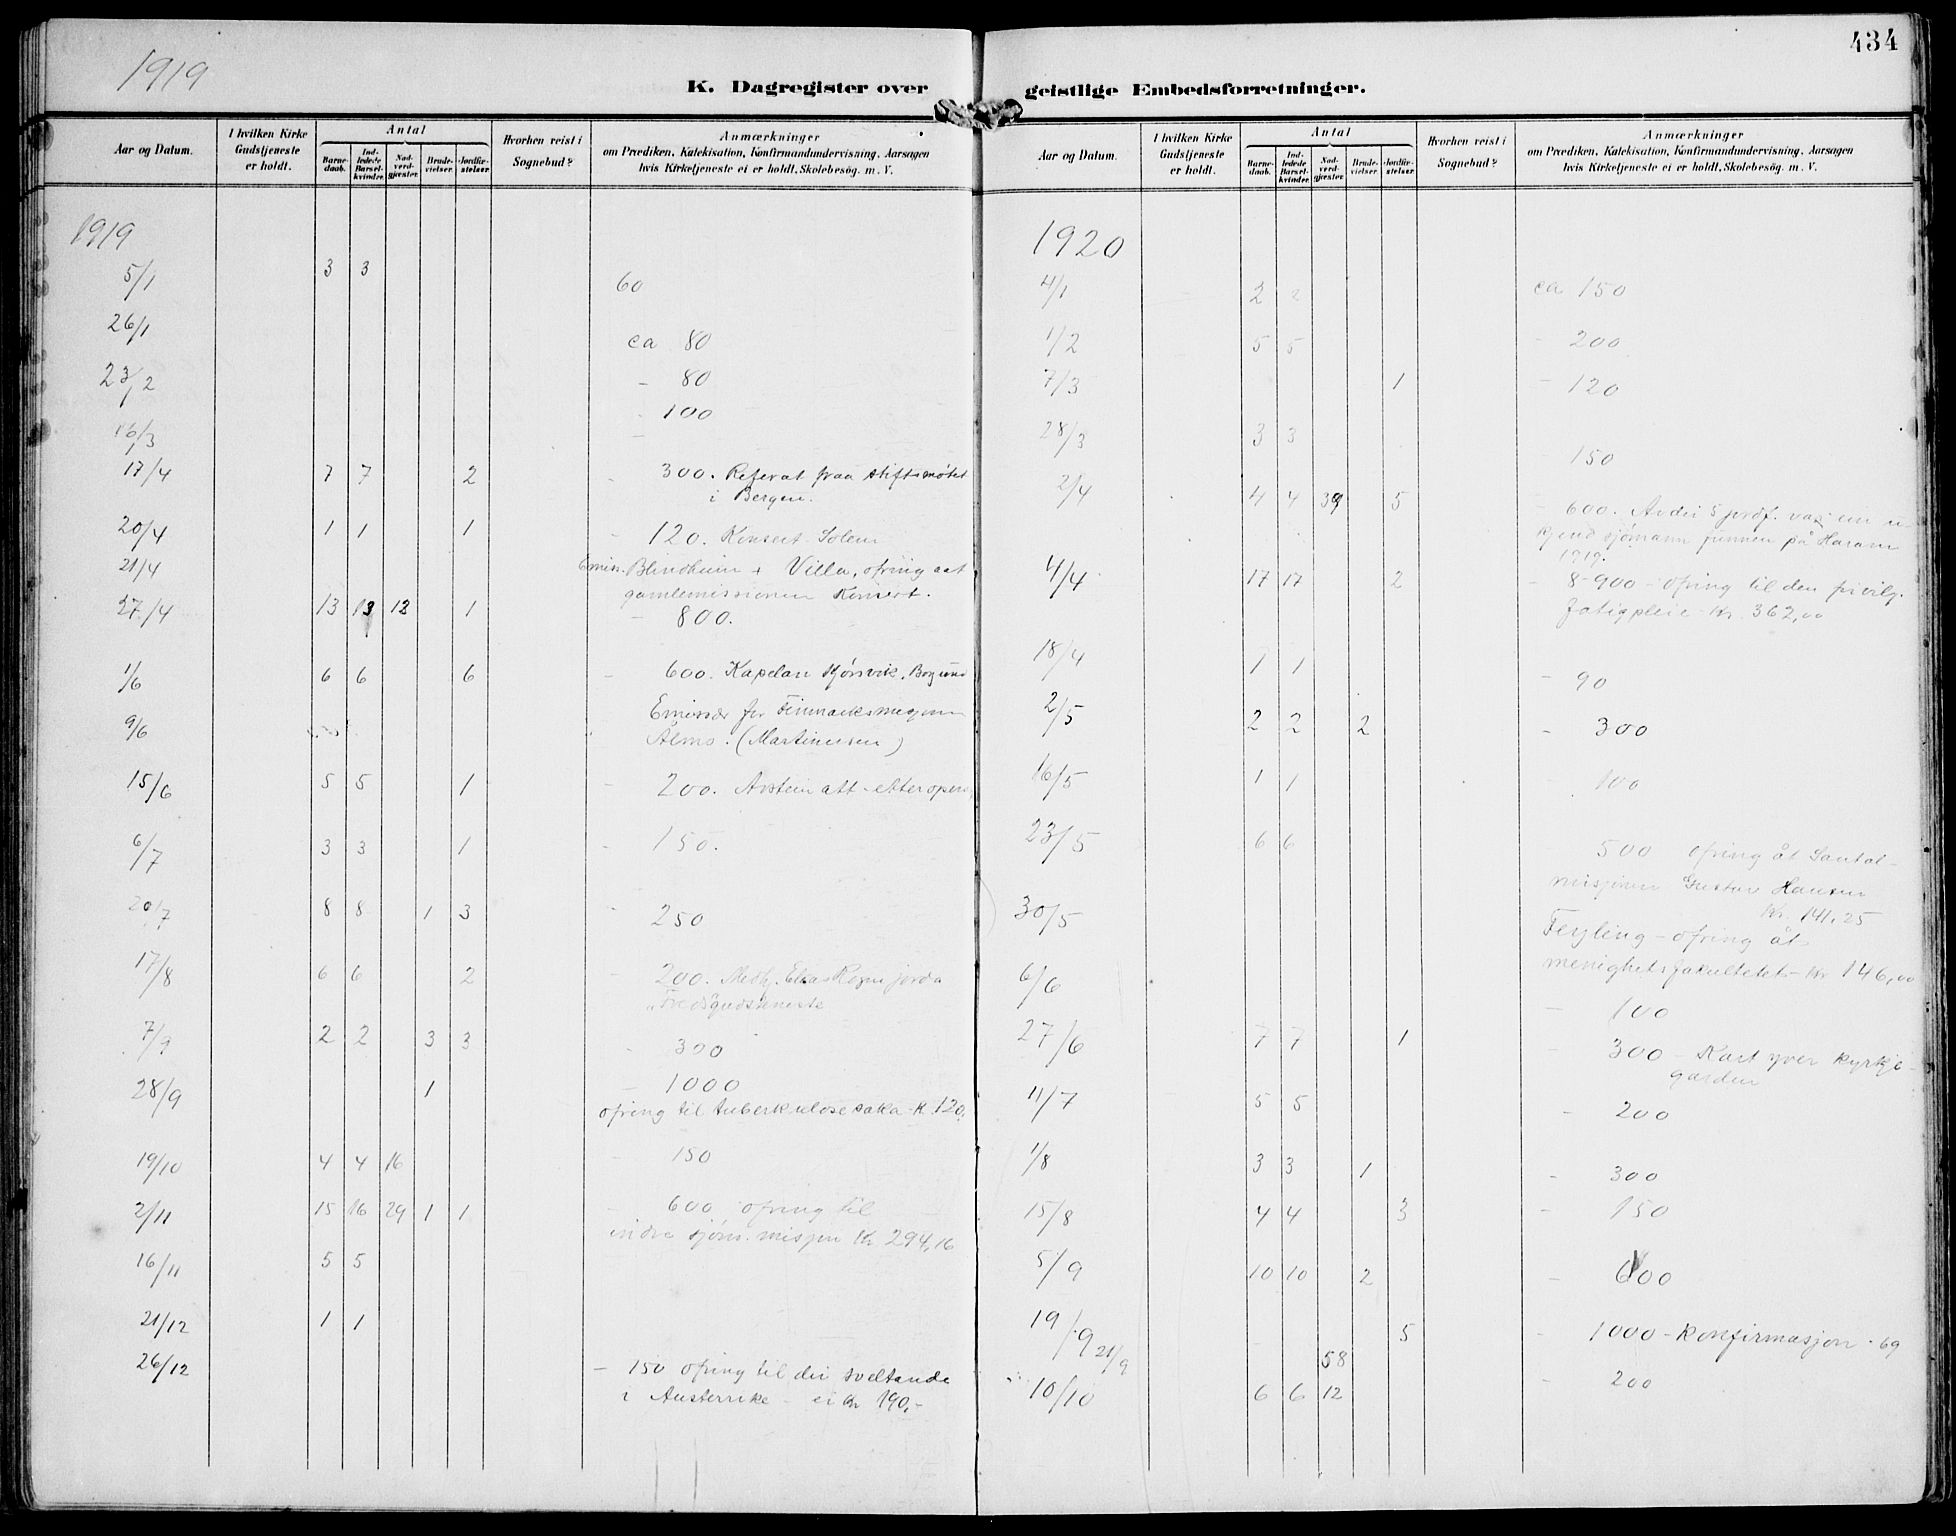 1919
434
K. Dagregister over
geistlige Embedsforretninger.
Aar og Datum.
I hvilken Kirke Gudstjeneste er holdt.
Antal
Barnedaab.
Indledede Barselkvinder.
Nadverdgjæster.
Brudevielser.
Jordfæstelser.
Hvorhen reist i Sognebud?
Anmærkninger
om Prædiken, Katekisation, Konfirmandundervisning, Aarsagen
hvis Kirketjeneste ei er holdt, Skolebesøg. m. V.
1919
5/1 3 3 60
26/1 ca 80
23/2 - 80
16/3 100
17/4 7 7 2 - 300. Referat fraa stiftsmøtet
i Bergen.
20/4 1 1 1 - 120. Konsert Solem
21/4 Emis. Blindheim + Villa, ofring aat
gamlemissionen Konsert.
27/4 13 13 12 1 - 800.
1/6 6 6 6 - 600. Kapelan Borgund
9/6 Emissær for
Almo. (Martinusen)
15/6 5 5 1 - 200. att etter
6/7 3 3 1 - 150.
20/7 8 8 1 3 - 250
17/8 6 6 2 - 200. Medhj. Elias Rogne jorda
7/9 2 2 3 3 - 300
28/9 1 - 1000
ofring til tuberkulosesaka K. 120.
19/10 4 4 16 - 150
2/11 15 16 29 1 1 - 600 ofring til
indre sjøm. misjon Kr 294,16
16/11 5 5
21/12 1 1
26/12 - 150 ofring til dei sveltande
i Austerrike - ei Kr 190,-
Aar og Datum.
I hvilken Kirke Gudstjeneste er holdt.
Antal
Barnedaab.
Indledede Barselkvinder.
Nadverdgjæster.
Brudevielser.
Jordfæstelser.
Hvorhen reist i Sognebud?
Anmærkninger
om Prædiken, Katekisation, Konfirmandundervisning, Aarsagen
hvis Kirketjeneste ei er holdt, Skolebesøg. m. V.
1920
4/1 2 2 ca 150
1/2 5 5 - 200
7/3 1 - 120
28/3 3 3 150
2/4 4 4 39 5 - 600. Av dei 5 jordf. var ein u-
kjend sjømann funnen på Haram
1919.
4/4 17 17 2 - 8-900 - ofring til den frivilg.
fatigpleie Kr. 362,00
18/4 1 1 - 90
2/5 2 2 2 - 300
16/5 1 1 100
23/5 6 6 500 ofring åt Santal-
misjonen Gustav Hansen
Kr. 141,25
30/5 - ofring åt
menighetsfakultetet - Kr 146,00
6/6 - 100
27/6 7 7 1 - 300 - Kart yver kyrkje-
garden
11/7 5 5 - 200
1/8 3 3 1 - 300
15/8 4 4 3 - 150
5/9 10 10 2 - 600
19/9 5 - 1000 - konfirmasjon - 69
21/9 58
10/10 6 6 12 - 200